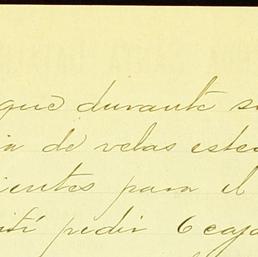 que durante su
ia de velas estea
ientes para el
ití pedir 6 caja